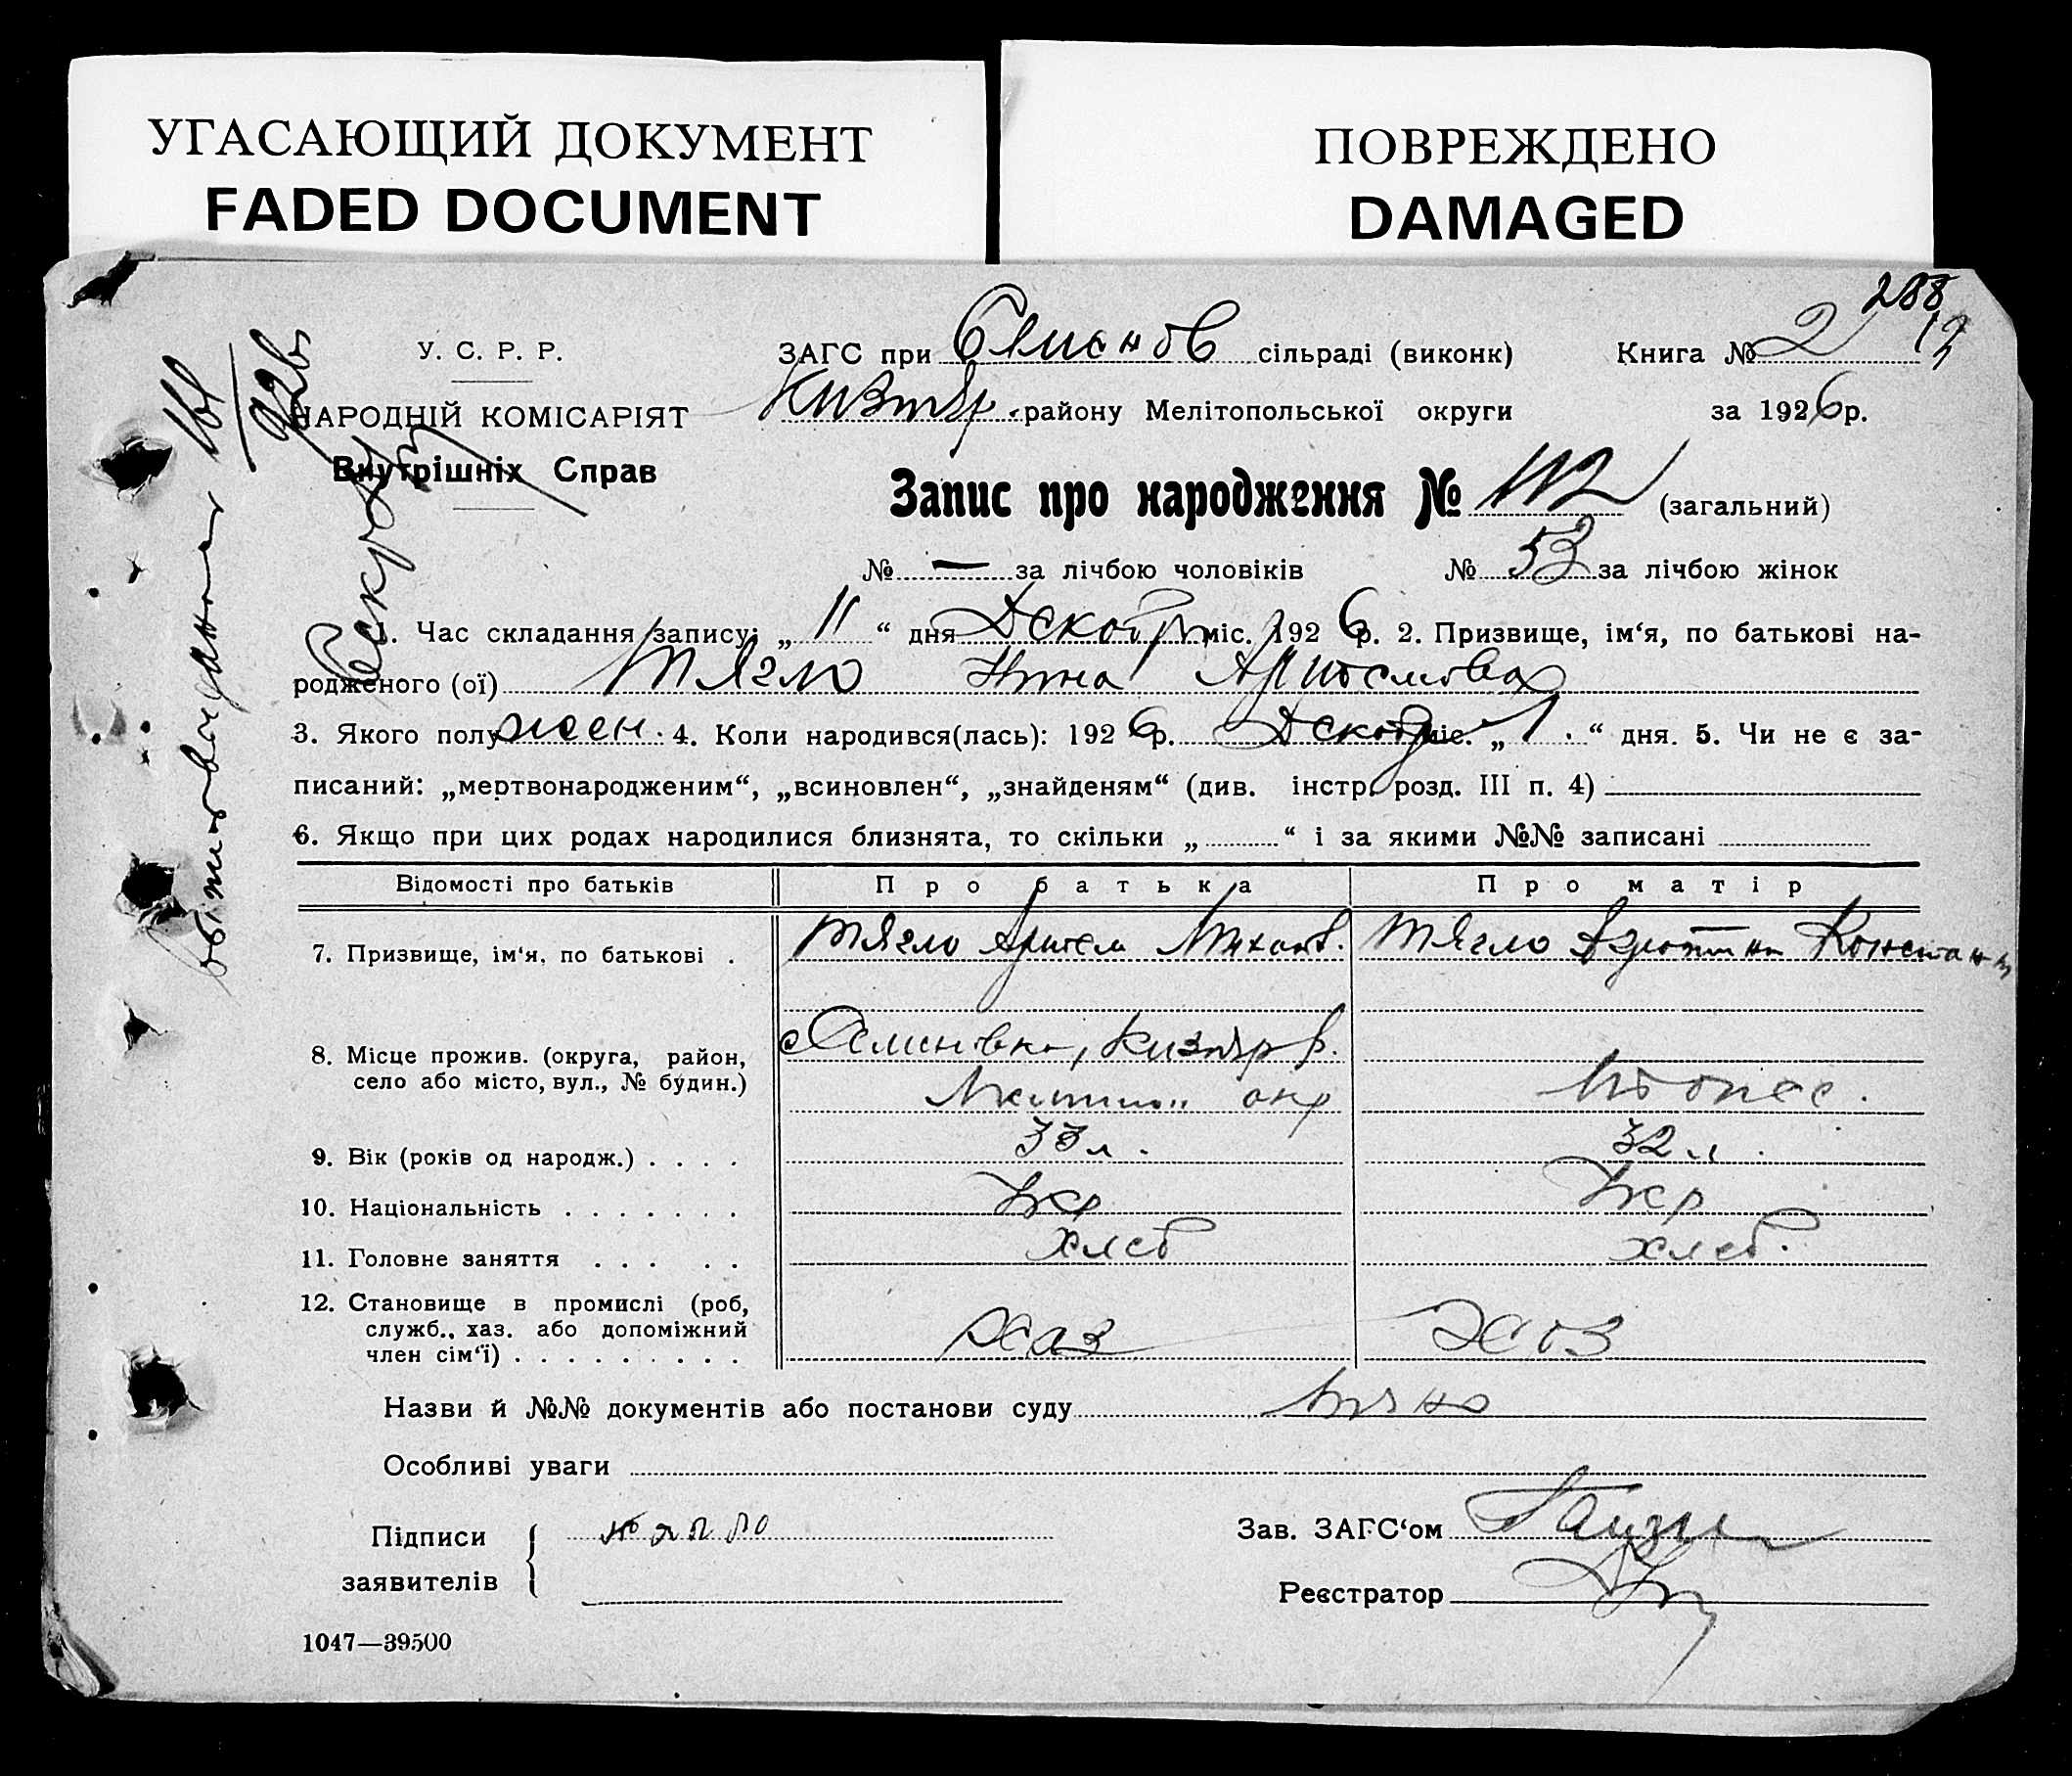 УГАСАЮЩИЙ ДОКУМЕНТ
FADED DOCUMENT
ПОВРЕЖДЕНО
DAMAGED
288
У. С. Р. Р.
НАРОДНІЙ КОМІСАРІЯТ
Внутрішніх Справ
ЗАГС при Семенов сільраді (виконк) Книга № 2
Кизияр. району Мелітопольської округи за 1926 р.
Запис про народження № 112 (загальний)
№ — за лічбою чоловіків № 53 за лічбою жінок
1. Час складання запису: „ 11 “ дня Декабр міс. 1926 р. 2. Призвище, ім‘я, по батькові на-
родженого (ої) Тягло Нина Артемовна
3. Якого полу жен. 4. Коли народився(лась): 1926 р. Декабр міс. „ 1. “ дня. 5. Чи не є за-
писаний: „мертвонародженим“, „всиновлен“, „знайденям“ (див. інстр. розд. III п. 4)
6. Якщо при цих родах народилися близнята, то скільки „ “ і за якими №№ записані
Відомості про батьків Про батька Про матір
7. Призвище, ім‘я, по батькові . Тягло Артем Тягло Констан
8. Місце прожив. (округа, район, село або місто, вул., № будин.) с Семенівка, Кизияр р.
окр
9. Вік (років од народж.) . . . . 33 л. 32 л.
10. Національність . . . . . . . Укр Укр
11. Головне заняття . . . . . Хлеб Хлеб.
12. Становище в промислі (роб, служб., хаз. або допоміжний член сім‘ї) . . . . . . . . . Хаз Хоз
Назви й №№ документів або постанови суду
Особливі уваги
Підписи заявителів тягло
Зав. ЗАГС‘ом
Реєстратор
1047—39500